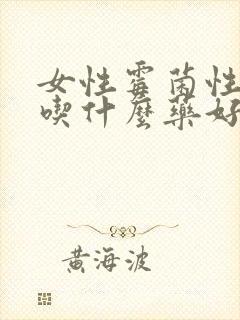 女性霉菌性
喫什麼藥好
黃海波